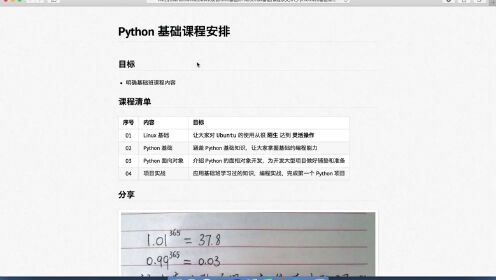 Python 基础课程安排
目标
明确基础班课程内容
课程清单
序号 内容 目标
01 Linux 基础 让大家对 Ubuntu 的使用从很 陌生 达到 灵活操作
02 Python 基础 涵盖 Python 基础知识，让大家掌握基础的编程能力
03 Python 面向对象 介绍 Python 的面相对象开发，为开发大型项目做好铺垫和准备
04 项目实战 应用基础班学习过的知识，编程实战，完成第一个 Python 项目
分享
1.01^365 = 37.8
0.99^365 = 0.03